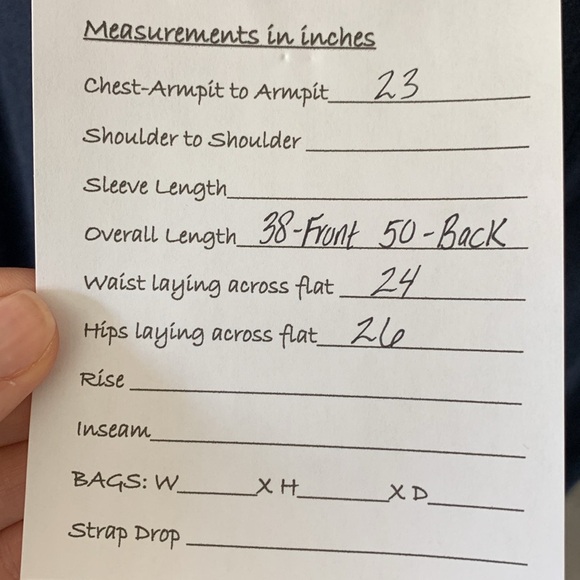 Measurements in inches
Chest-Armpit to Armpit 23
Shoulder to Shoulder
Sleeve Length
Overall Length 38-Front 50-Back
Waist laying across flat 24
Hips laying across flat 26
Rise
Inseam
BAGS: W______X H______X D______
Strap Drop